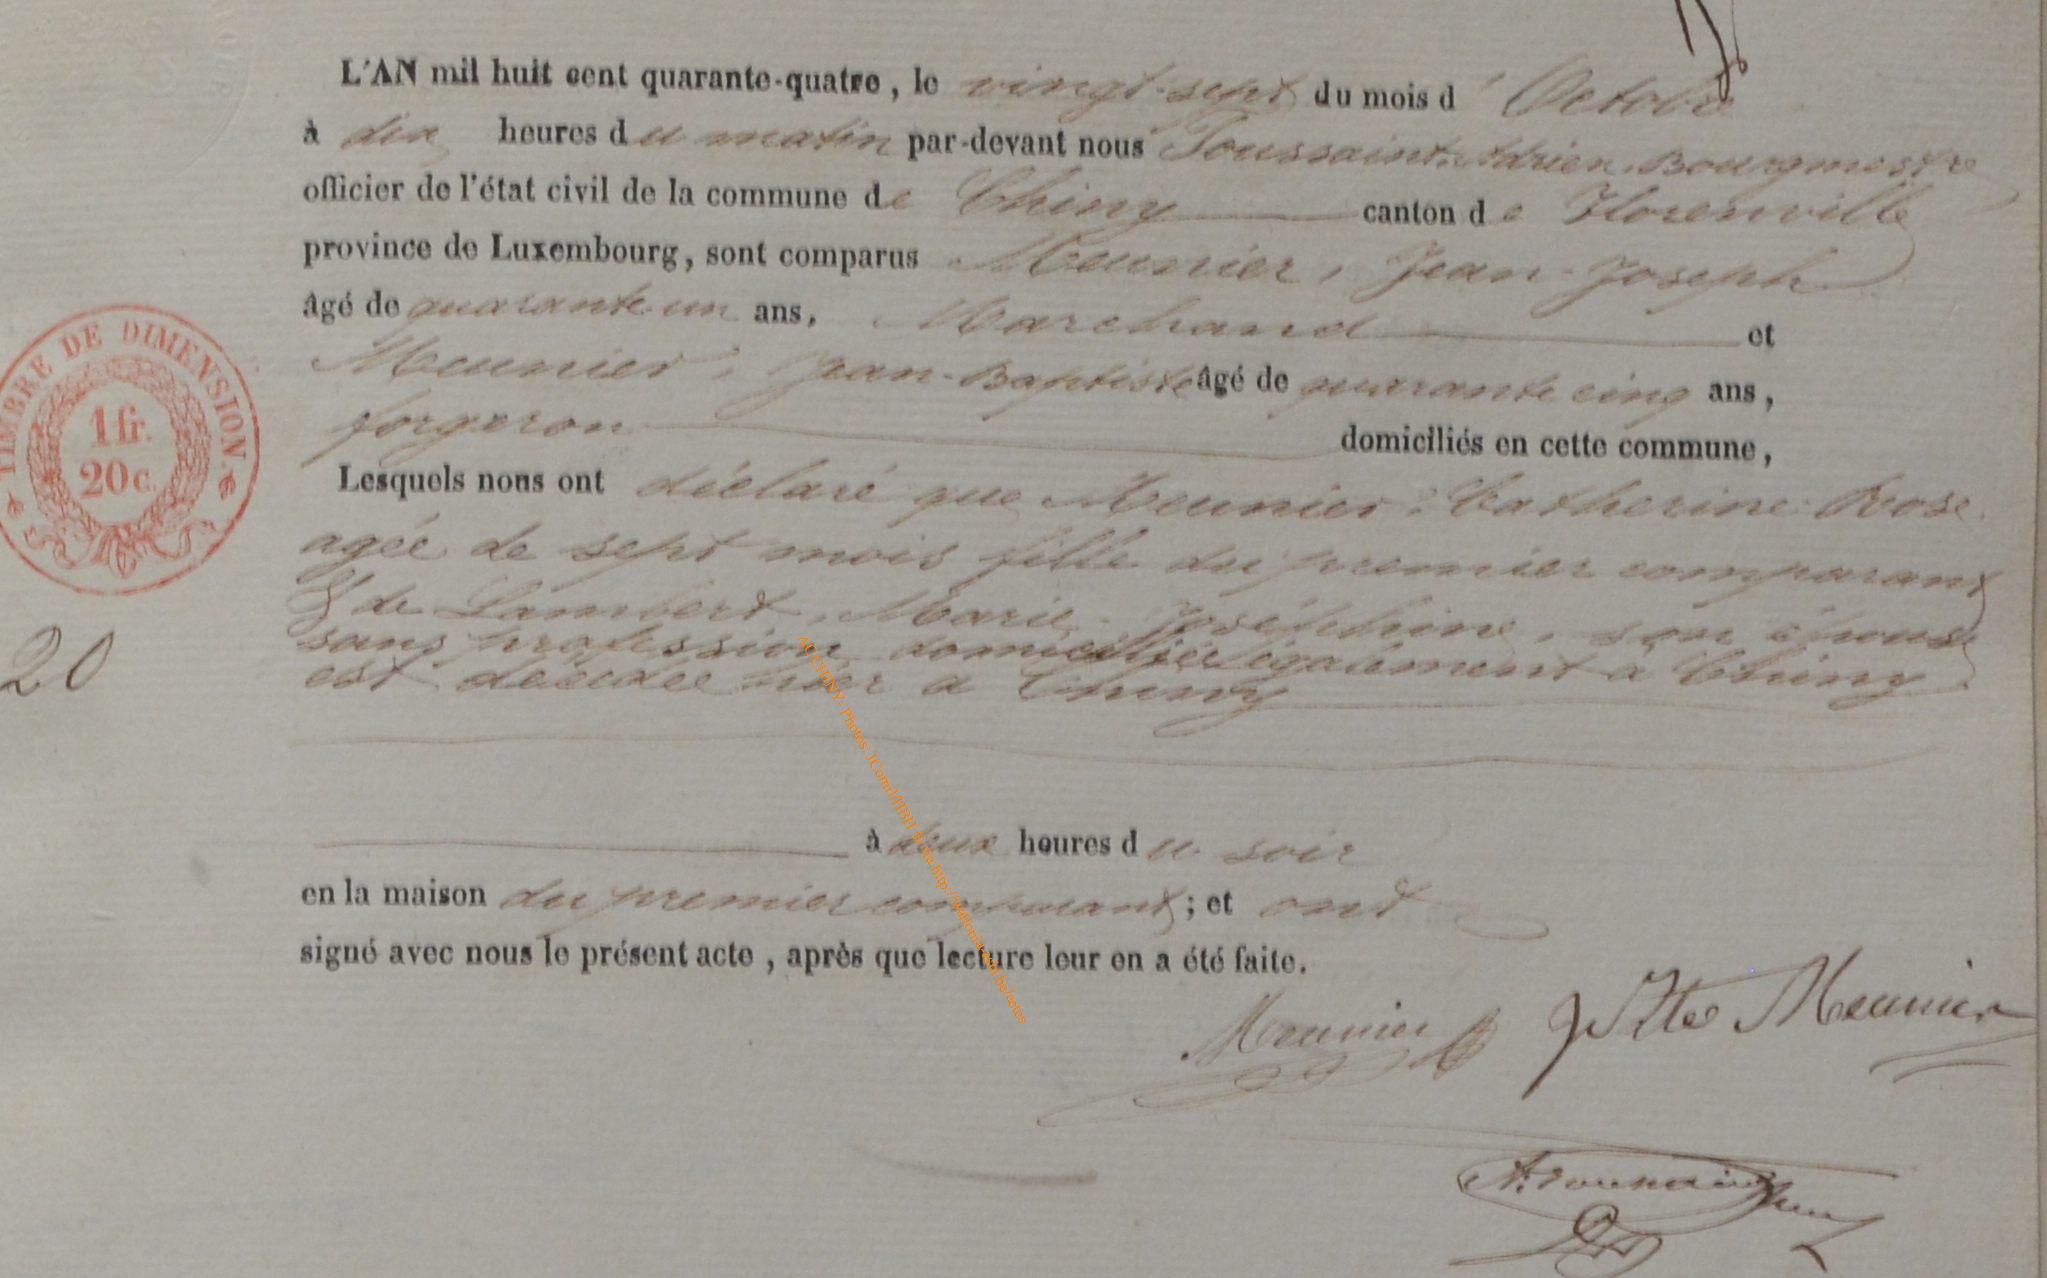 L'AN mil huit cent quarante-quatre, le vingt-sept du mois d'Octobre
à dix heures du matin par-devant nous Toussaint Adrien Bourgmestre
officier de l'état civil de la commune de Chiny canton de Florenville
province de Luxembourg, sont comparus Meunier, Jean-Joseph
âgé de quarante un ans, Marchand et
Meunier, Jean-Baptiste âgé de quarante cinq ans,
forgeron domiciliés en cette commune,
Lesquels nous ont déclaré que Meunier, Catherine-Rose
agée de sept mois fille du premier comparant
& de Lambert, Marie-Joséphine, son épouse
sans profession domiciliée également à Chiny
est décédée hier à Chiny
à deux heures du soir
en la maison du premier comparant; et ont
signé avec nous le présent acte, après que lecture leur en a été faite.
Meunier JBte Meunier
A. Toussaint
TIMBRE DE DIMENSION
1 fr.
20 c.
20